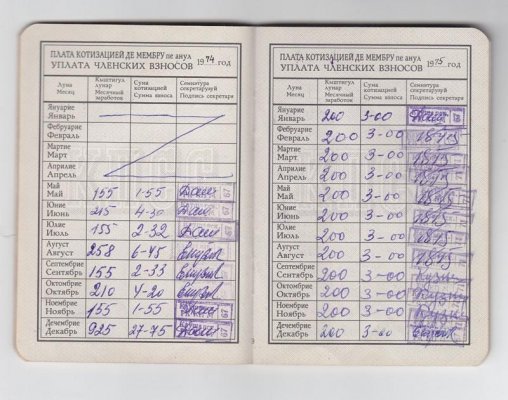 ПЛАТА КОТИЗАЦИЕЙ ДЕ МЕМБРУ пе анул
УПЛАТА ЧЛЕНСКИХ ВЗНОСОВ 1974 год
Луна Месяц Кыштигул лунар Месячный заработок Сума котизацией Сумма взноса Семнэтура секретарулуй Подпись секретаря
Януарие Январь
Фебруарие Февраль
Мартие Март
Априлие Апрель
Май Май 155 1-55
Юние Июнь 215 4-30
Юлие Июль 155 2-32
Аугуст Август 258 6-45
Септембрие Сентябрь 155 2-33
Октомбрие Октябрь 210 4-20
Ноембрие Ноябрь 155 1-55
Дечембрие Декабрь 925 27-75
ПЛАТА КОТИЗАЦИЕЙ ДЕ МЕМБРУ пе анул
УПЛАТА ЧЛЕНСКИХ ВЗНОСОВ 1975 год
Луна Месяц Кыштигул лунар Месячный заработок Сума котизацией Сумма взноса Семнэтура секретарулуй Подпись секретаря
Януарие Январь 200 3-00
Фебруарие Февраль 200 3-00
Мартие Март 200 3-00
Априлие Апрель 200 3-00
Май Май 200 3-00
Юние Июнь 200 3-00
Юлие Июль 200 3-00
Аугуст Август 200 3-00
Септембрие Сентябрь 200 3-00
Октомбрие Октябрь 200 3-00
Ноембрие Ноябрь 200 3-00
Дечембрие Декабрь 200 3-00